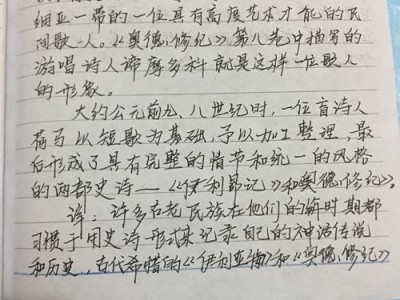 细亚一带的一位具有高度艺术才能的民
间歌人。《奥德修纪》第八卷中描写的
游唱诗人谛摩多科就是这样一位歌人
的形象。
大约公元前九、八世纪时,一位盲诗人
荷马以短歌为基础,予以加工整理,最
后形成了具有完整的情节和统一的风格
的两部史诗——《伊利昂记》和《奥德修纪》。
注:许多古老民族在他们的新时期都
习惯于用史诗形式来记录自己的神话传说
和历史,古代希腊的《伊利亚特》和《奥德修纪》